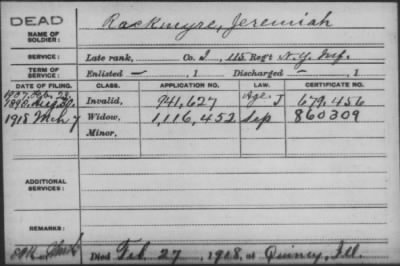 DEAD
NAME OF SOLDIER: Rackmyre, Jeremiah
SERVICE: Late rank, Co. I, 115 Reg't N.Y. Inf.
TERM OF SERVICE: Enlisted — , 1 Discharged — , 1
DATE OF FILING. CLASS. APPLICATION NO. LAW. CERTIFICATE NO.
1907
1890, Aug. Invalid, 941,627 Age J 679,456
1918 Mch 7 Widow, 1,116,452 Sep 860309
Minor,
ADDITIONAL SERVICES:
REMARKS:
Died Feb. 27, 1918, at Quincy, Ill.